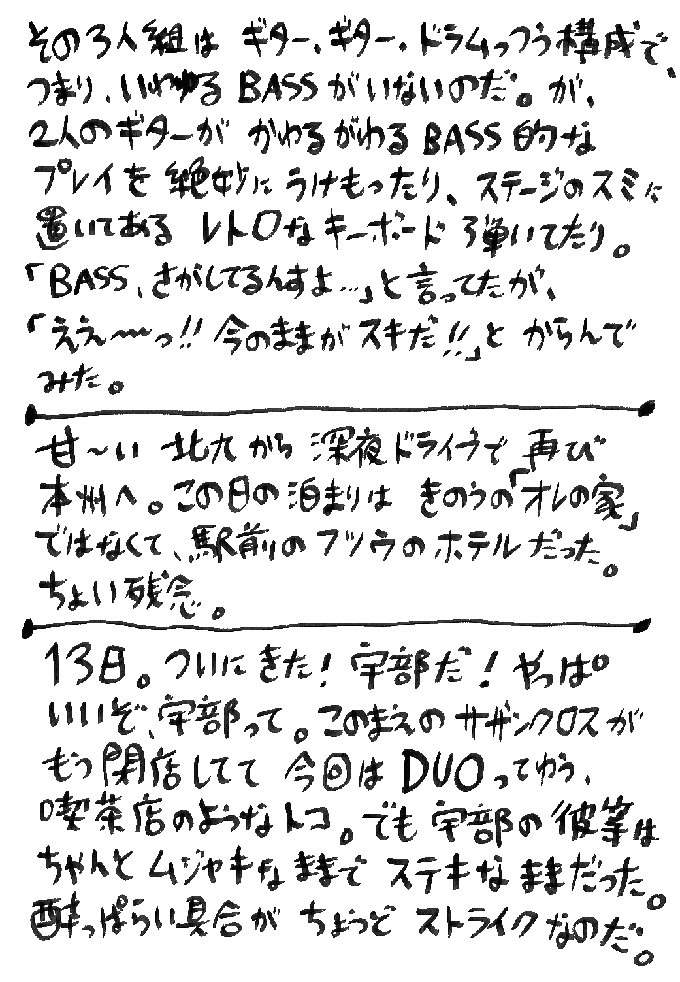 その3人組は ギター、ギター、ドラムっつう構成で、
つまり、いわゆる BASSがいないのだ。が、
2人のギターが かわるがわる BASS的な
プレイを 絶妙に うけもったり、ステージのスミに
置いてある レトロなキーボード弾いてたり。
「BASS、さがしてるんすよ…」と言ってたが、
「ええ〜っ!!今のままが スキだ!!」と からんで
みた。
甘〜い 北九から 深夜ドライブで 再び
本州へ。この日の泊まりは きのうの「オレの家」
ではなくて、駅前のフツウのホテルだった。
ちょい残念。
13日。ついにきた!宇部だ!やっぱ
いいぞ、宇部って。このまえの サザンクロスが
もう閉店してて 今回は DUOってゆう、
喫茶店のようなトコ。でも宇部の彼等は
ちゃんと ムジャキなままで ステキなままだった。
酔っぱらい具合が ちょうど ストライクなのだ。